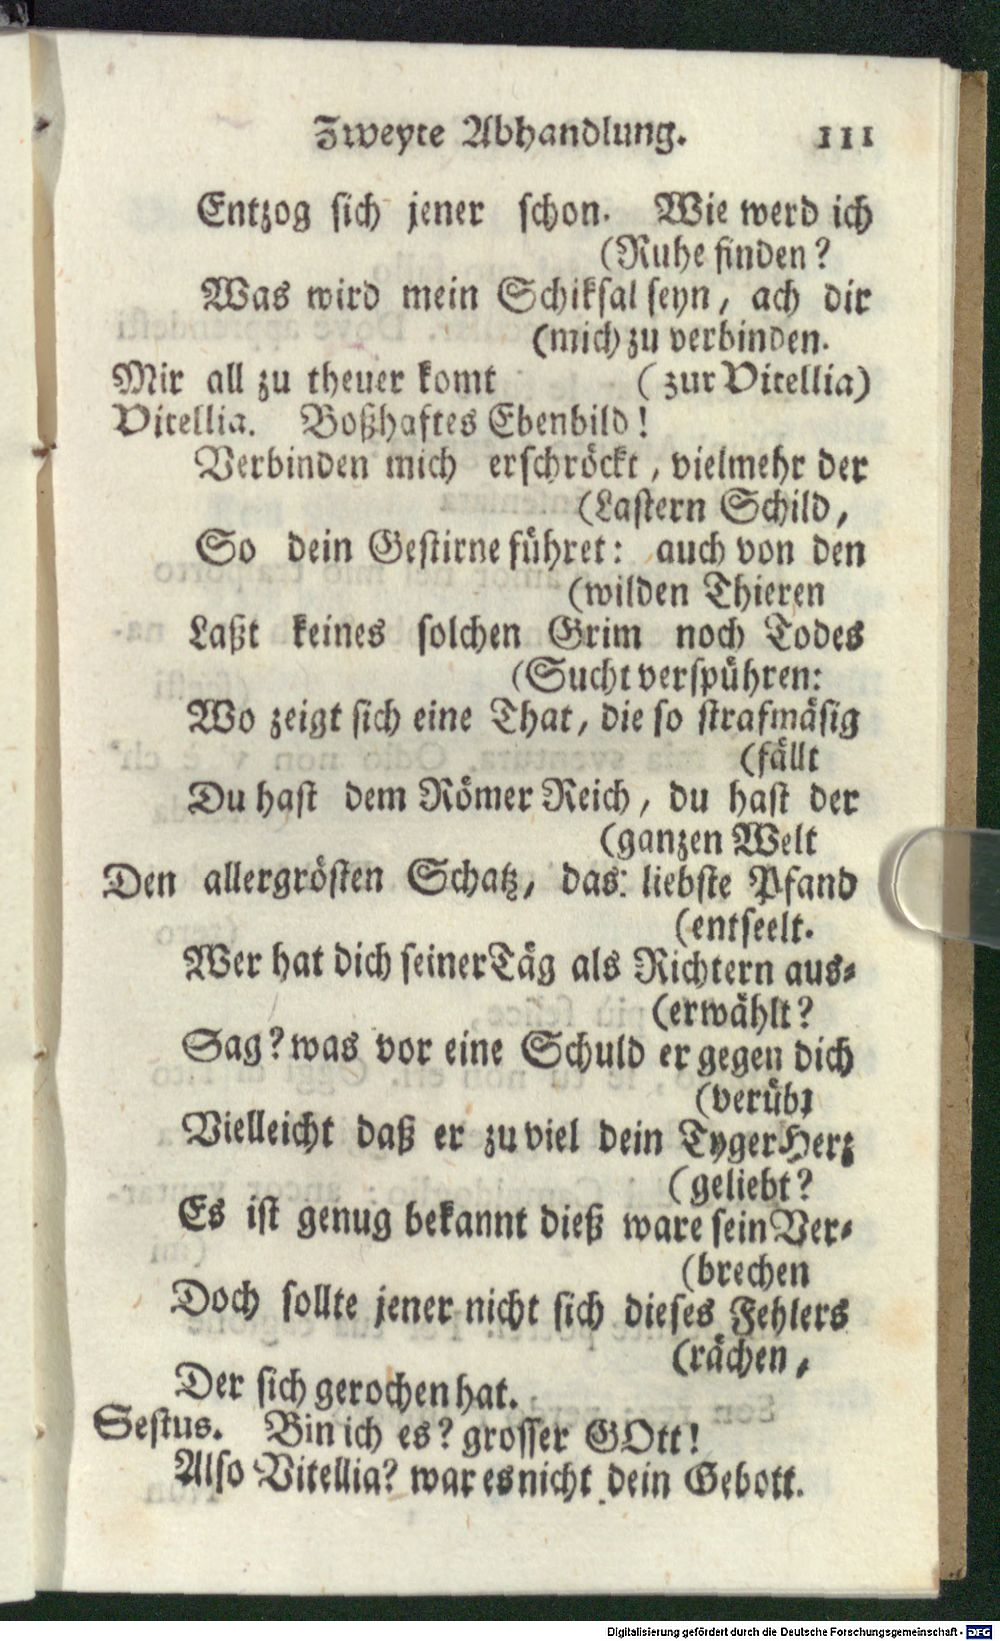 Zweyte Abhandlung. 111
Entzog sich jener schon. Wie werd ich
(Ruhe finden?
Was wird mein Schiksal seyn, ach dir
(mich zu verbinden.
Mir all zu theuer komt (zur Vitellia)
Vitellia. Boßhaftes Ebenbild!
Verbinden mich erschröckt, vielmehr der
(Lastern Schild,
So dein Gestirne führet: auch von den
(wilden Thieren
Laßt keines solchen Grim noch Todes
(Sucht verspühren:
Wo zeigt sich eine That, die so strafmäsig
(fällt
Du hast dem Römer Reich, du hast der
(ganzen Welt
Den allergrösten Schatz, das: liebste Pfand
(entseelt.
Wer hat dich seiner Täg als Richtern aus-
(erwählt?
Sag? was vor eine Schuld er gegen dich
(verübt
Vielleicht daß er zu viel dein Tyger Herz
(geliebt?
Es ist genug bekannt dieß ware sein Ver-
(brechen
Doch sollte jener nicht sich dieses Fehlers
(rächen,
Der sich gerochen hat.
Sestus. Bin ich es? grosser GOtt!
Also Vitellia? war es nicht dein Gebott.
Digitalisierung gefördert durch die Deutsche Forschungsgemeinschaft - DFG